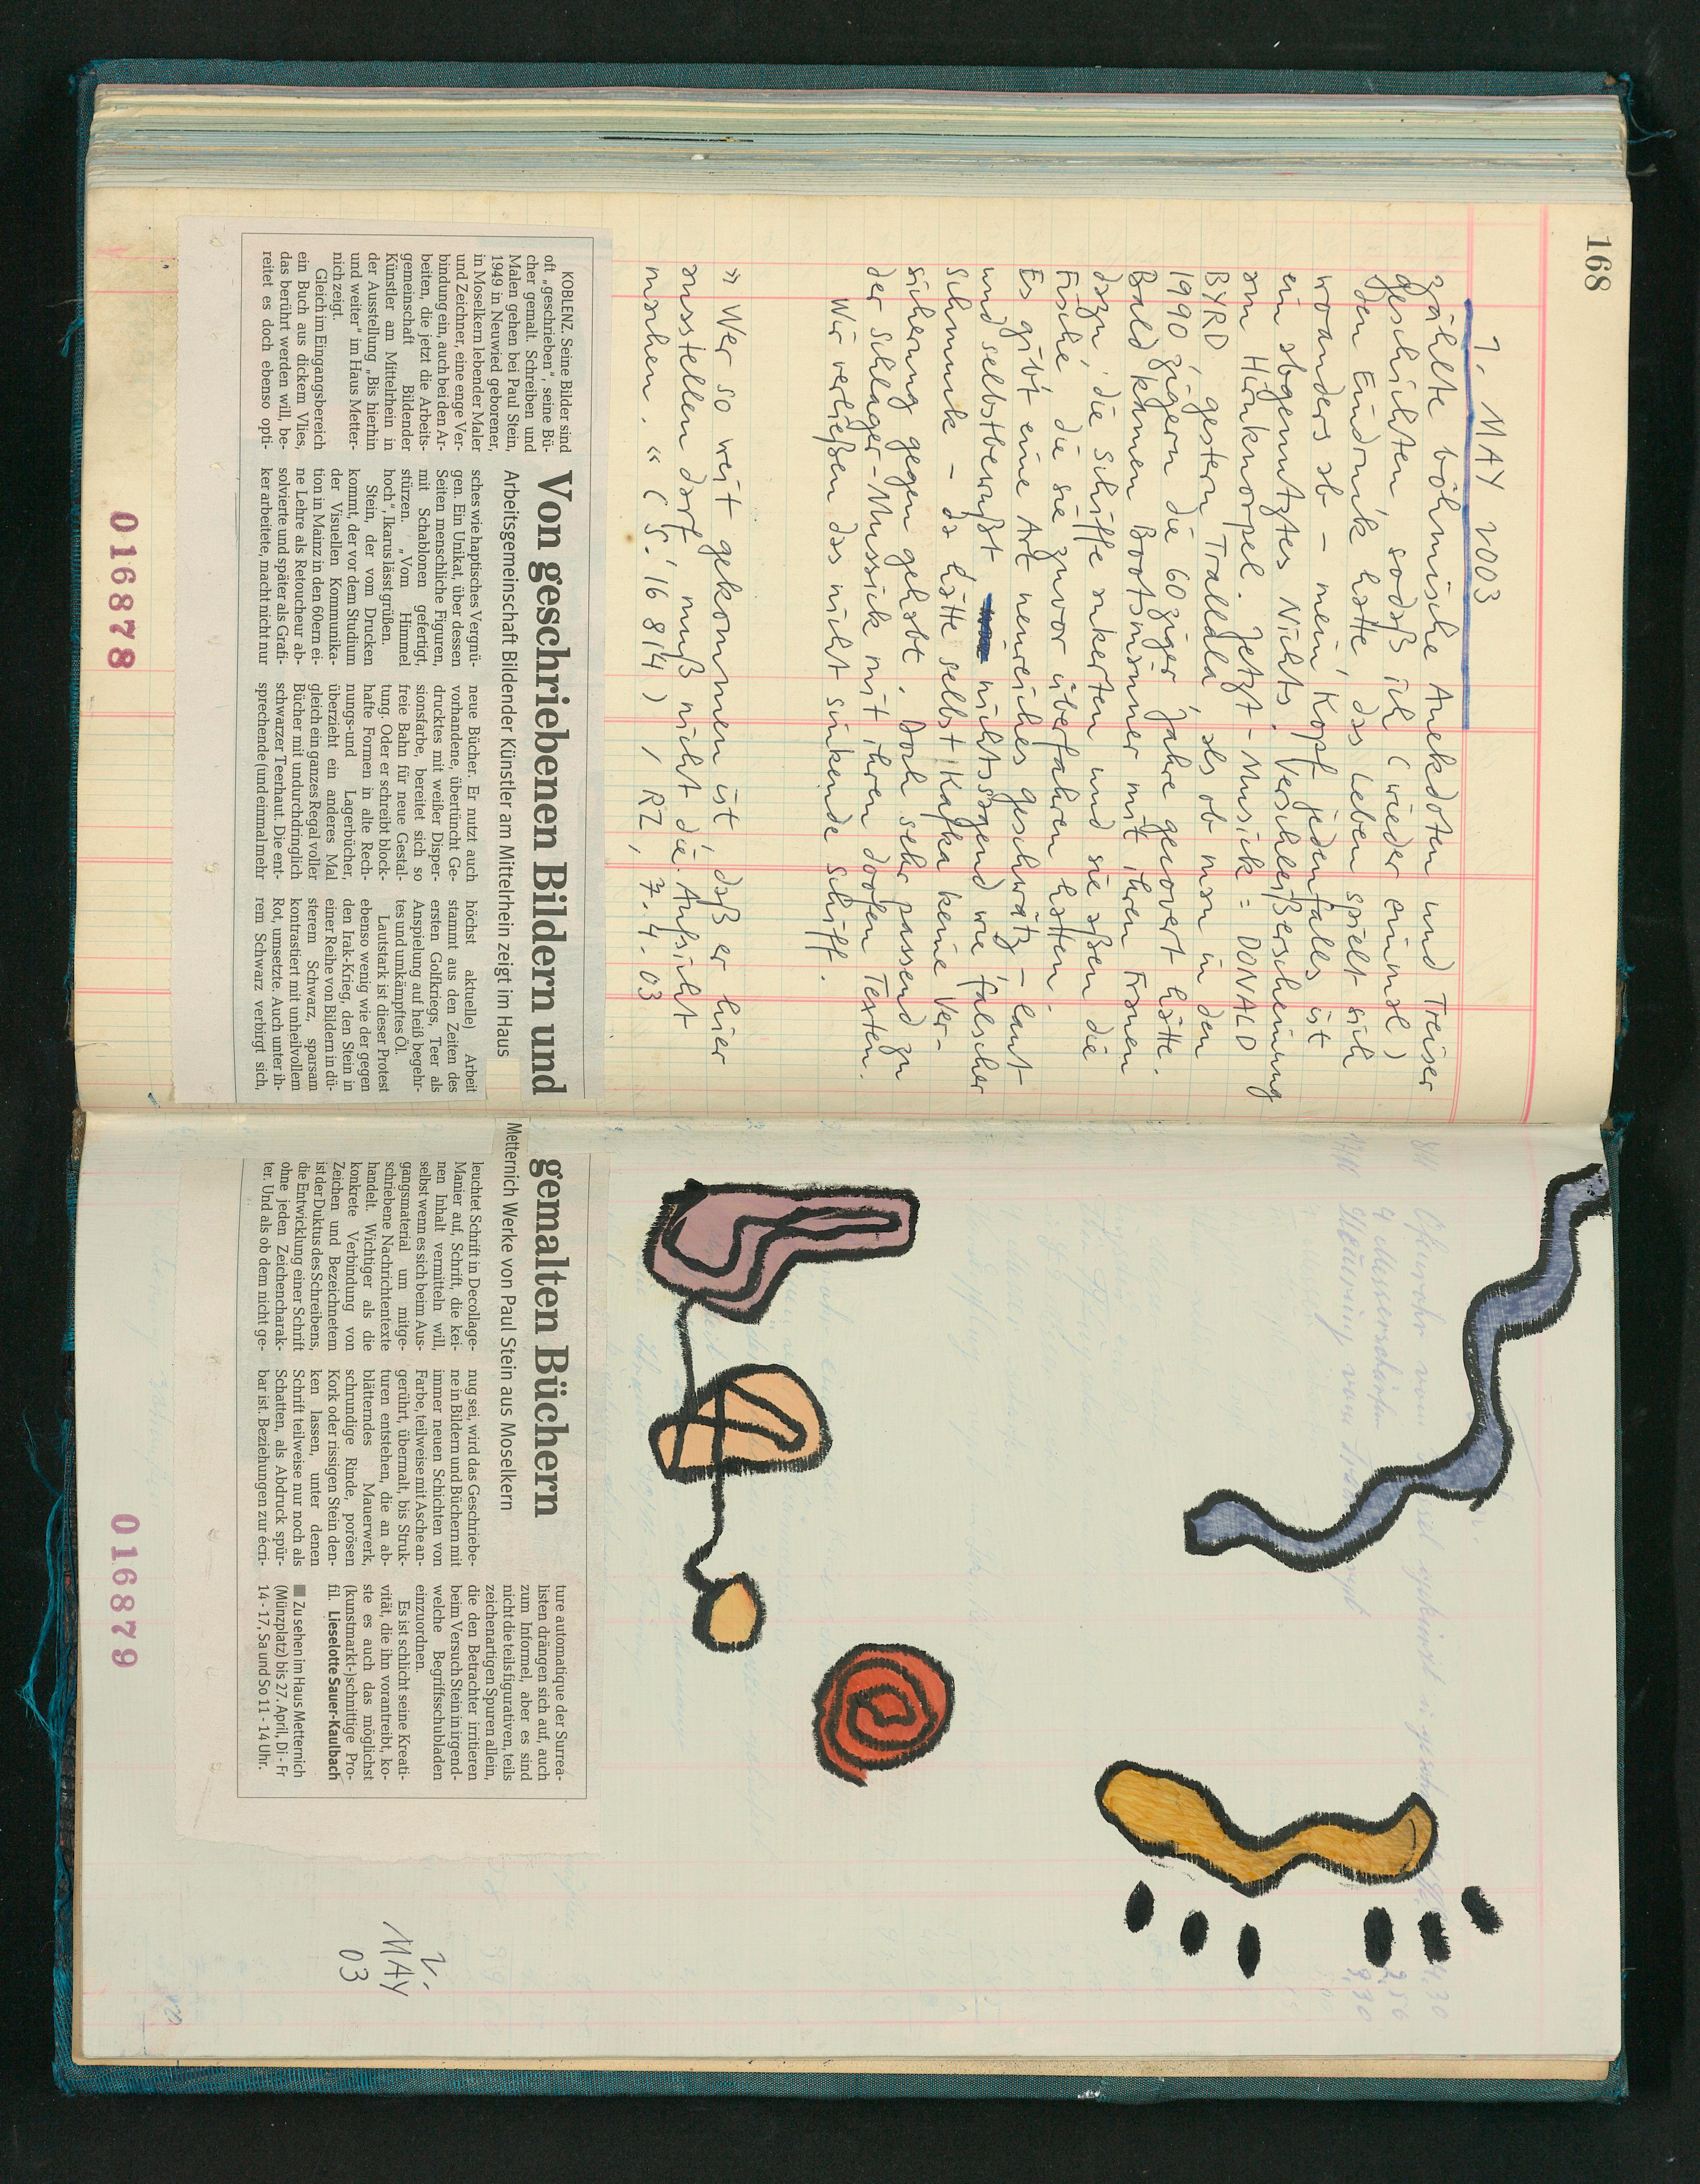 168
1. MAY 2003
zählte böhmische Anekdoten und Treiser
geschichten, sodaß ich (wieder einmal)
den Eindruck hatte, das Leben spielt sich
woanders ab – mein Kopf jedenfalls ist
ein abgenutztes Nichts. Verschleißerscheinung
am Hirnknorpel. Jetzt-Musick = DONALD
BYRD, gestern Tralldala, als ob man in den
1990zigern die 60ziger Jahre geoovert hätte.
Bald kamen Bootsmänner mit ihren Frauen
dazu, die Schiffe ankerten und sie aßen die
Fische, die sie zuvor überfahren hatten.
Es gibt eine Art neureiches Geschwätz – laut
und selbstbewußt nichtssagend wie falscher
Schmuck – da hätte selbst Kafka keine Ver-
sicherung gegen gehabt. Doch sehr passend zu
der Schlager-Mussick mit ihren doofen Texten.
Wir verließen das nicht sinkende Schiff.
» Wer so weit gekommen ist, daß er hier
ausstellen darf, muß nicht die Aufsicht
machen. « (S. 16 814) / RZ, 7.4.03
Von geschriebenen Bildern und
Arbeitsgemeinschaft Bildender Künstler am Mittelrhein zeigt im Haus
KOBLENZ. Seine Bilder sind
oft „geschrieben“, seine Bü-
cher gemalt. Schreiben und
Malen gehen bei Paul Stein,
1949 in Neuwied geborener,
in Moselkern lebender Maler
und Zeichner, eine enge Ver-
bindung ein, auch bei den Ar-
beiten, die jetzt die Arbeits-
gemeinschaft Bildender
Künstler am Mittelrhein in
der Ausstellung „Bis hierhin
und weiter“ im Haus Metter-
nich zeigt.
Gleich im Eingangsbereich
ein Buch aus dickem Vlies,
das berührt werden will, be-
reitet es doch ebenso opti-
sches wie haptisches Vergnü-
gen. Ein Unikat, über dessen
Seiten menschliche Figuren,
mit Schablonen gefertigt,
stürzen. „Vom Himmel
hoch“, Ikarus lässt grüßen.
Stein, der vom Drucken
kommt, der vor dem Studium
der Visuellen Kommunika-
tion in Mainz in den 60ern ei-
ne Lehre als Retoucheur ab-
solvierte und später als Grafi-
ker arbeitete, macht nicht nur
neue Bücher. Er nutzt auch
vorhandene, übertüncht Ge-
drucktes mit weißer Disper-
sionsfarbe, bereitet sich so
freie Bahn für neue Gestal-
tung. Oder er schreibt block-
hafte Formen in alte Rech-
nungs-und Lagerbücher,
überzieht ein anderes Mal
gleich ein ganzes Regal voller
Bücher mit undurchdringlich
schwarzer Teerhaut. Die ent-
sprechende (und einmal mehr
höchst aktuelle) Arbeit
stammt aus den Zeiten des
ersten Golfkriegs, Teer als
Anspielung auf heiß begehr-
tes und umkämpftes Öl.
Lautstark ist dieser Protest
ebenso wenig wie der gegen
den Irak-Krieg, den Stein in
einer Reihe von Bildern in dü-
sterem Schwarz, sparsam
kontrastiert mit unheilvollem
Rot, umsetzte. Auch unter ih-
rem Schwarz verbirgt sich,
016878
gemalten Büchern
Metternich Werke von Paul Stein aus Moselkern
leuchtet Schrift in Decollage-
Manier auf, Schrift, die kei-
nen Inhalt vermitteln will,
selbst wenn es sich beim Aus-
gangsmaterial um mitge-
schriebene Nachrichtentexte
handelt. Wichtiger als die
konkrete Verbindung von
Zeichen und Bezeichnetem
ist der Duktus des Schreibens,
die Entwicklung einer Schrift
ohne jeden Zeichencharak-
ter. Und als ob dem nicht ge-
nug sei, wird das Geschriebe-
ne in Bildern und Büchern mit
immer neuen Schichten von
Farbe, teilweise mit Asche an-
gerührt, übermalt, bis Struk-
turen entstehen, die an ab-
blätterndes Mauerwerk,
schrundige Rinde, porösen
Kork oder rissigen Stein den-
ken lassen, unter denen
Schrift teilweise nur noch als
Schatten, als Abdruck spür-
bar ist. Beziehungen zur écri-
ture automatique der Surrea-
listen drängen sich auf, auch
zum Informel, aber es sind
nicht die teils figurativen, teils
zeichenartigen Spuren allein,
die den Betrachter irritieren
beim Versuch Stein in irgend-
welche Begriffsschubladen
einzuordnen.
Es ist schlicht seine Kreati-
vität, die ihn vorantreibt, ko-
ste es auch das möglichst
(kunstmarkt-)schnittige Pro-
fil. Lieselotte Sauer-Kaulbach
■ Zu sehen im Haus Metternich
(Münzplatz) bis 27. April, Di - Fr
14 - 17, Sa und So 11 - 14 Uhr.
2.
MAY
03
016879